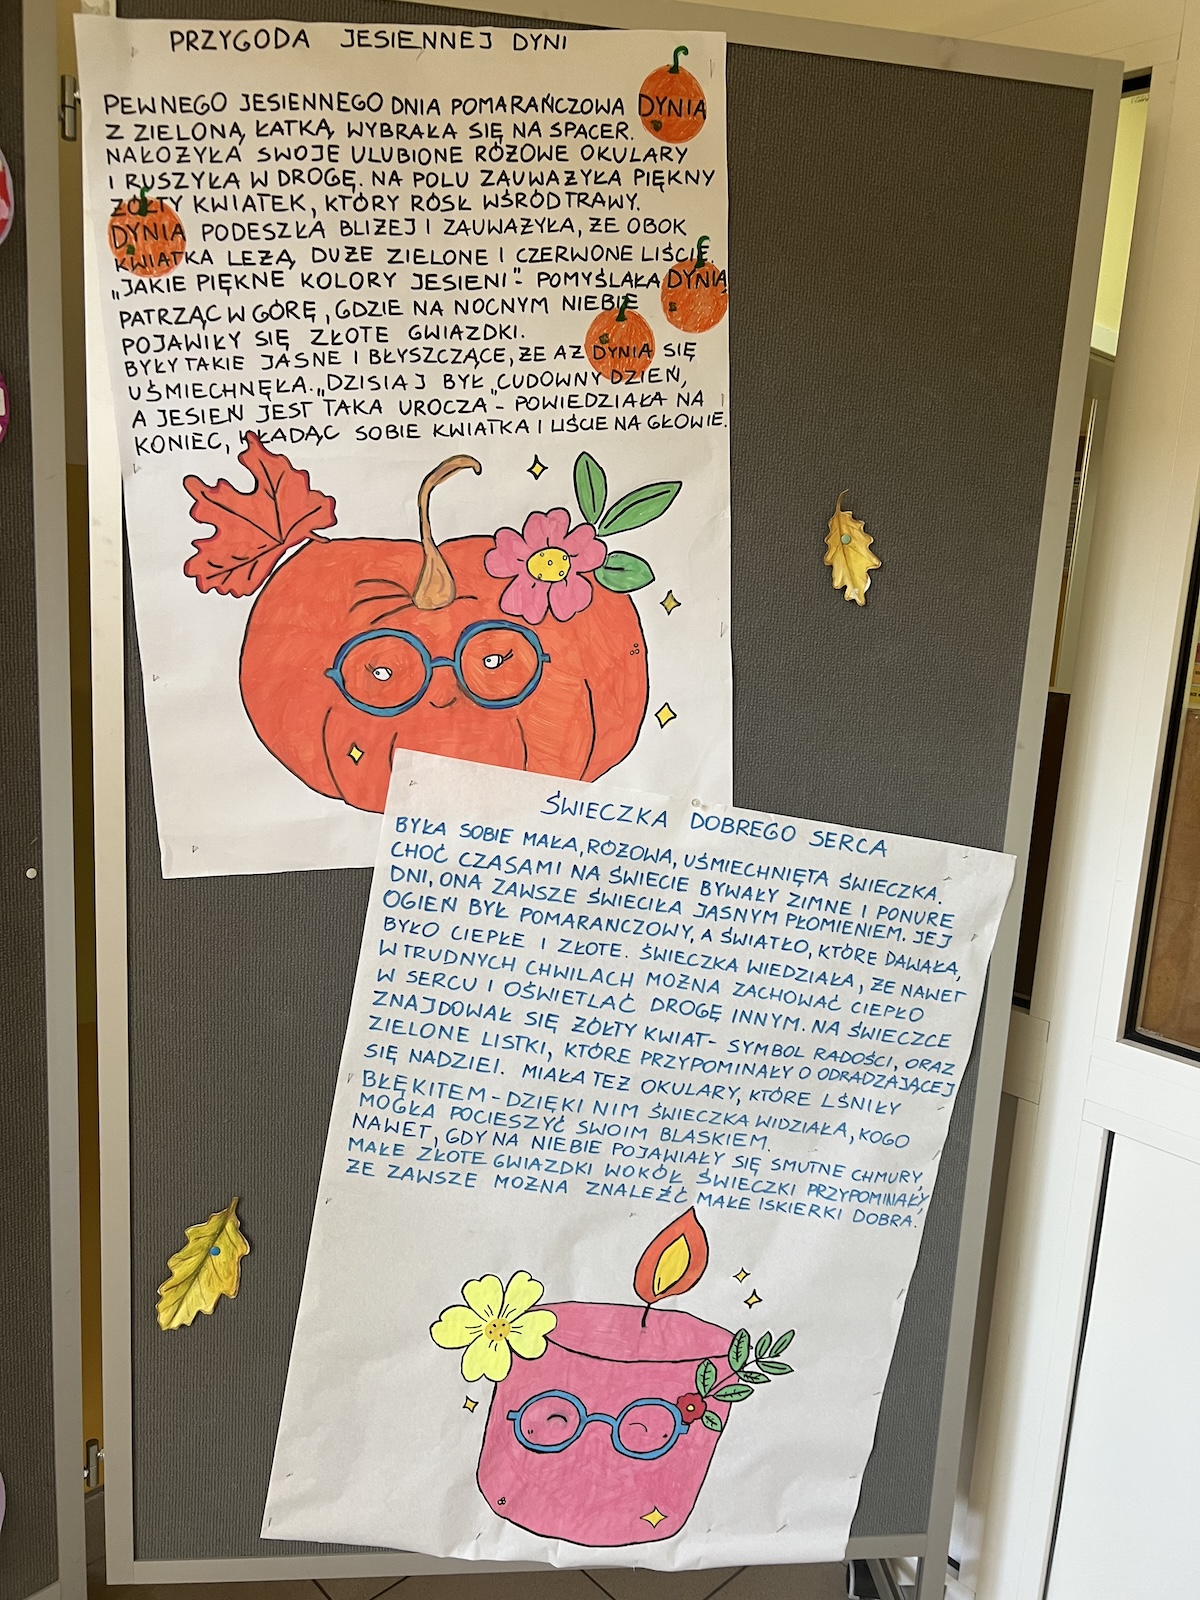 PRZYGODA JESIENNEJ DYNI
PEWNEGO JESIENNEGO DNIA POMARAŃCZOWA DYNIA
Z ZIELONĄ ŁATKĄ WYBRAŁA SIĘ NA SPACER.
NAŁOŻYŁA SWOJE ULUBIONE RÓŻOWE OKULARY
I RUSZYŁA W DROGĘ. NA POLU ZAUWAŻYŁA PIĘKNY
ŻÓŁTY KWIATEK, KTÓRY RÓSŁ WŚRÓD TRAWY.
DYNIA PODESZŁA BLIŻEJ I ZAUWAŻYŁA, ŻE OBOK
KWIATKA LEŻĄ DUŻE ZIELONE I CZERWONE LIŚCIE.
„JAKIE PIĘKNE KOLORY JESIENI" - POMYŚLAŁA DYNIA
PATRZĄC W GÓRĘ, GDZIE NA NOCNYM NIEBIE
POJAWIŁY SIĘ ZŁOTE GWIAZDKI.
BYŁY TAKIE JASNE I BŁYSZCZĄCE, ŻE AŻ DYNIA SIĘ
UŚMIECHNĘŁA. „DZISIAJ BYŁ „CUDOWNY DZIEŃ,
A JESIEŃ JEST TAKA UROCZA" - POWIEDZIAŁA NA
KONIEC, KŁADĄC SOBIE KWIATKA I LIŚCIE NA GŁOWIE.
ŚWIECZKA DOBREGO SERCA
BYŁA SOBIE MAŁA, RÓŻOWA, UŚMIECHNIĘTA ŚWIECZKA.
CHOĆ CZASAMI NA ŚWIECIE BYWAŁY ZIMNE I PONURE
DNI, ONA ZAWSZE ŚWIECIŁA JASNYM PŁOMIENIEM. JEJ
OGIEŃ BYŁ POMARAŃCZOWY, A ŚWIATŁO, KTÓRE DAWAŁA,
BYŁO CIEPŁE I ZŁOTE. ŚWIECZKA WIEDZIAŁA, ŻE NAWET
W TRUDNYCH CHWILACH MOŻNA ZACHOWAĆ CIEPŁO
W SERCU I OŚWIETLAĆ DROGĘ INNYM. NA ŚWIECZCE
ZNAJDOWAŁ SIĘ ŻÓŁTY KWIAT - SYMBOL RADOŚCI, ORAZ
ZIELONE LISTKI, KTÓRE PRZYPOMINAŁY O ODRADZAJĄCEJ
SIĘ NADZIEI. MIAŁA TEŻ OKULARY, KTÓRE LŚNIŁY
BŁĘKITEM - DZIĘKI NIM ŚWIECZKA WIDZIAŁA, KOGO
MOGŁA POCIESZYĆ SWOIM BLASKIEM.
NAWET, GDY NA NIEBIE POJAWIAŁY SIĘ SMUTNE CHMURY,
MAŁE ZŁOTE GWIAZDKI WOKÓŁ ŚWIECZKI PRZYPOMINAŁY,
ŻE ZAWSZE MOŻNA ZNALEŹĆ MAŁE ISKIERKI DOBRA.